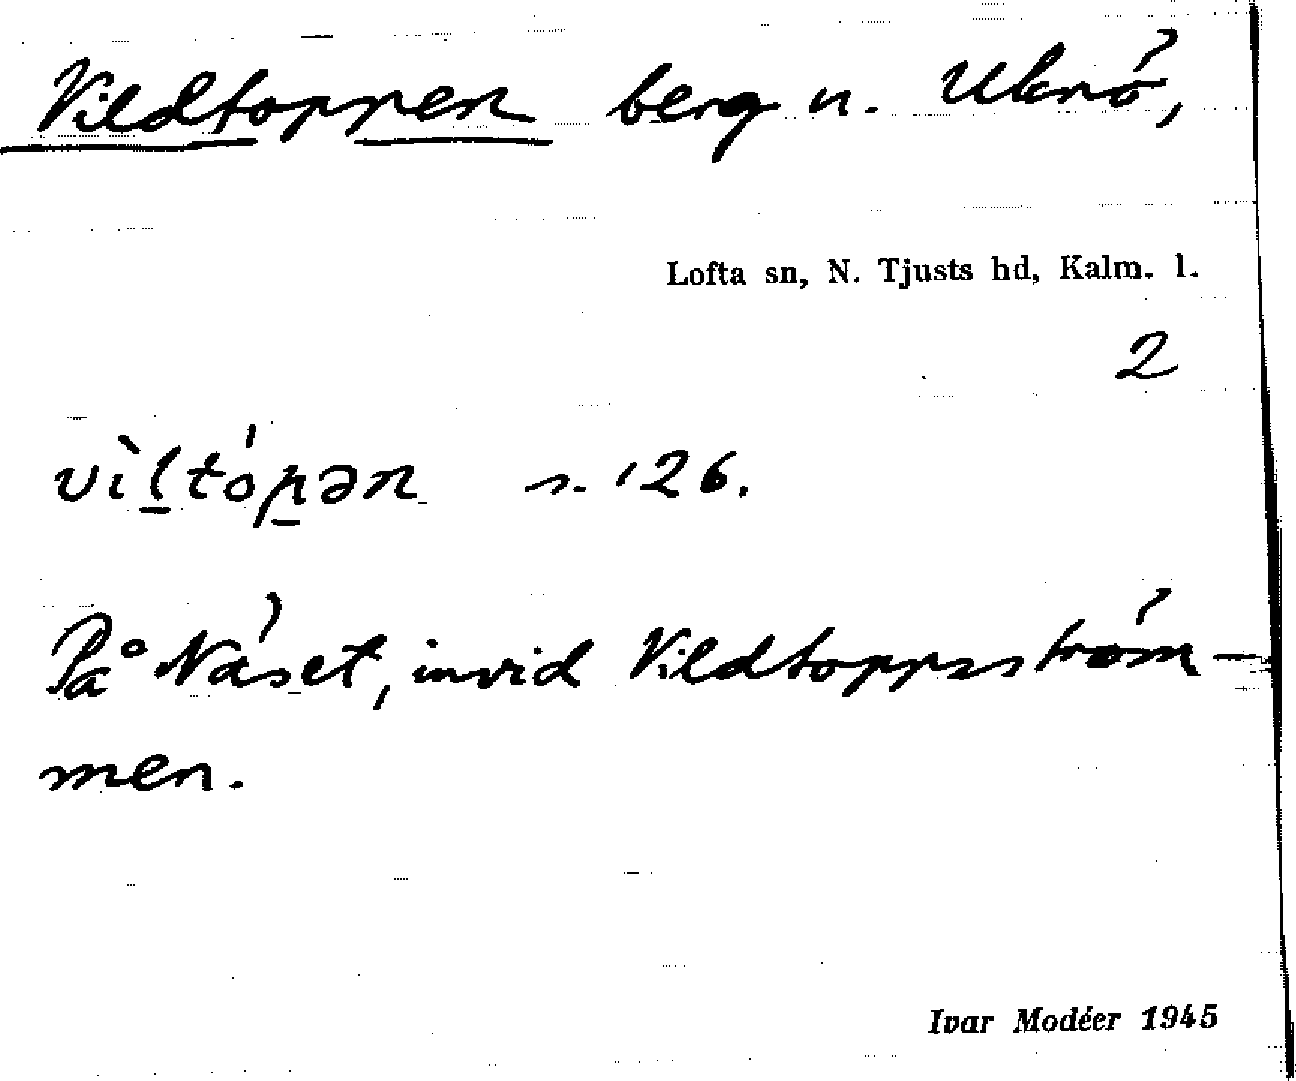 Vildtoppen berg n. Uknö,
Lofta sn, N. Tjusts hd, Kalm. l.
2
vìl̠tóp̠ən s. 126.
På Näset, invid Vildtoppsström-
men.
Ivar Modéer 1945